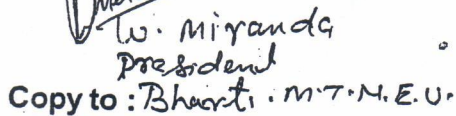 W. Miranda
President
Copy to : Bharti. M.T.N.E.U.